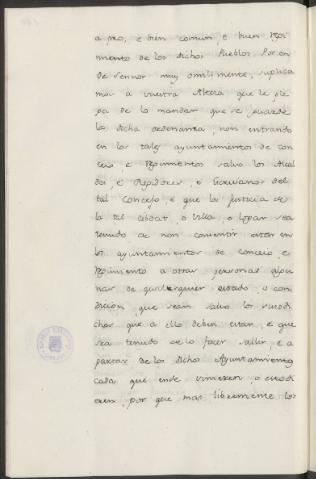 a pro, e bien comun, e buen Rexi
miento de los dichos Pueblos Por en
de Sennor muy omilmente, suplica
mos a vuestra Alteza que le ple
ga de lo mandar que se guarde
la dicha ordenanza, non entrando
en los tales ayuntamientos de con
cejo, e Regimientos salvo los Alcal
des, e Regidores, e Escrivanos del
tal Concejo, e que la justicia de
la tal cibdat, o villa, o logar sea
tenudo de non consentir estar en
los ayuntamientos de Concejo, e
Regimiento a otras personas algu
nas de qualesquier estado, o con
dicion, que sean salvo los susodi
chos que a ello deben estar, e que
sea tenudo de lo facer salir, e a
partar de los dichos Ayuntamientos
cada que ende vinieren, o estodi
eren, por que mas libremente los